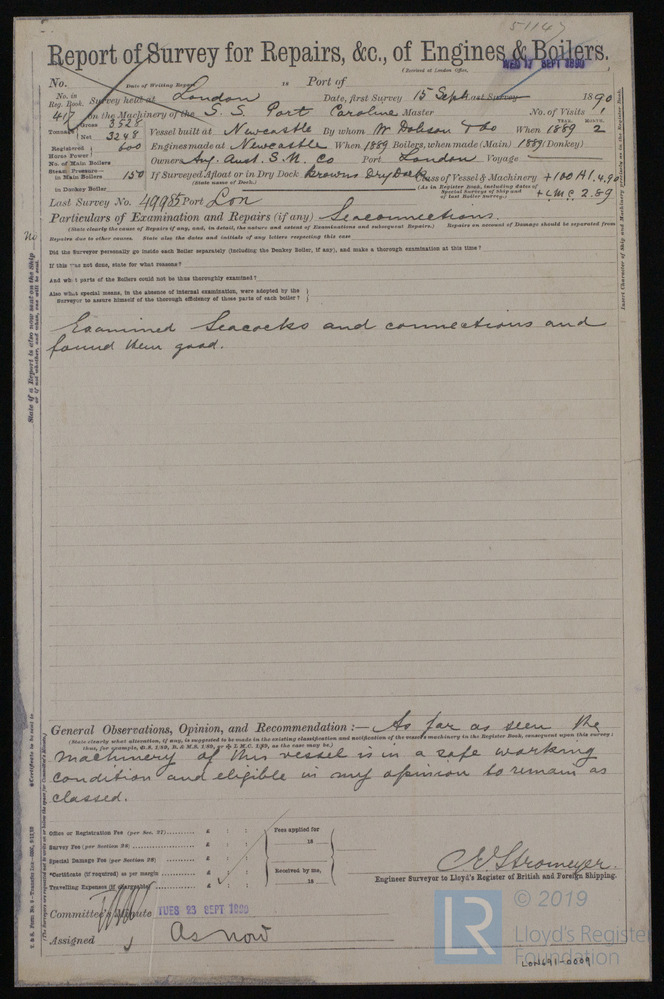 51147
Report of Survey for Repairs, &c., of Engines & Boilers.
(Revised at London Office.
WED 17 SEPT 1890
No. Date of Writing Report 18 Port of
No. in Reg. Book. Survey held at London Date, first Survey 15 Sept Last Survey 1890
417 on the Machinery of the S. S. Port Caroline Master No. of Visits 1
Tonnage Gross 3528 Net 3248 Vessel built at Newcastle By whom W Dobson & Co When 1889 YEAR. MONTH. 2
Registered Horse Power 600 Engines made at Newcastle When 1889 Boilers, when made (Main) 1889 (Donkey)
No. of Main Boilers Owners Ang. Aust. S. N. Co Port London Voyage
Steam Pressure in Main Boilers 150 If Surveyed Afloat or in Dry Dock Browns Dry Dock Class of Vessel & Machinery +100A1.4.90
(State name of Dock.) (As in Register Book, including dates of Special Surveys of Ship and of last Boiler Survey.)
in Donkey Boiler + LMC 2.89
Last Survey No. 49985 Port Lon
Particulars of Examination and Repairs (if any) Seaconnections.
(State clearly the cause of Repairs if any, and, in detail, the nature and extent of Examinations and subsequent Repairs.) Repairs on account of Damage should be separated from
Repairs due to other causes. State also the dates and initials of any letters respecting this case
Did the Surveyor personally go inside each Boiler separately (including the Donkey Boiler, if any), and make a thorough examination at this time?
If this was not done, state for what reasons?
And what parts of the Boilers could not be thus thoroughly examined?
Also what special means, in the absence of internal examination, were adopted by the
Surveyor to assure himself of the thorough efficiency of those parts of each boiler?
Examined Seacocks and connections and
found them good.
General Observations, Opinion, and Recommendation :— As far as seen the
(State clearly what alteration, if any, is suggested to be made in the existing classification and notification of the vessel's machinery in the Register Book, consequent upon this survey;
machinery of this vessel is in a safe working
condition and eligible in my opinion to remain as
classed.
Office or Registration Fee (per Sec. 27) £ : :
Survey Fee (per Section 28) £ : :
Special Damage Fee (per Section 28) £ : :
*Certificate (if required) as per margin £ : :
Travelling Expenses (if chargeable) £ : :
Fees applied for
18
Received by me,
18
C E Stromeyer.
Engineer Surveyor to Lloyd's Register of British and Foreign Shipping.
Committee's Minute TUES 23 SEPT 1890
Assigned As now
No
State if a Report is also now sent on the Ship
Insert Character of Ship and Machinery precisely as in the Register Book.
LR
© 2019
Lloyd's Register
Foundation
LON691-0009